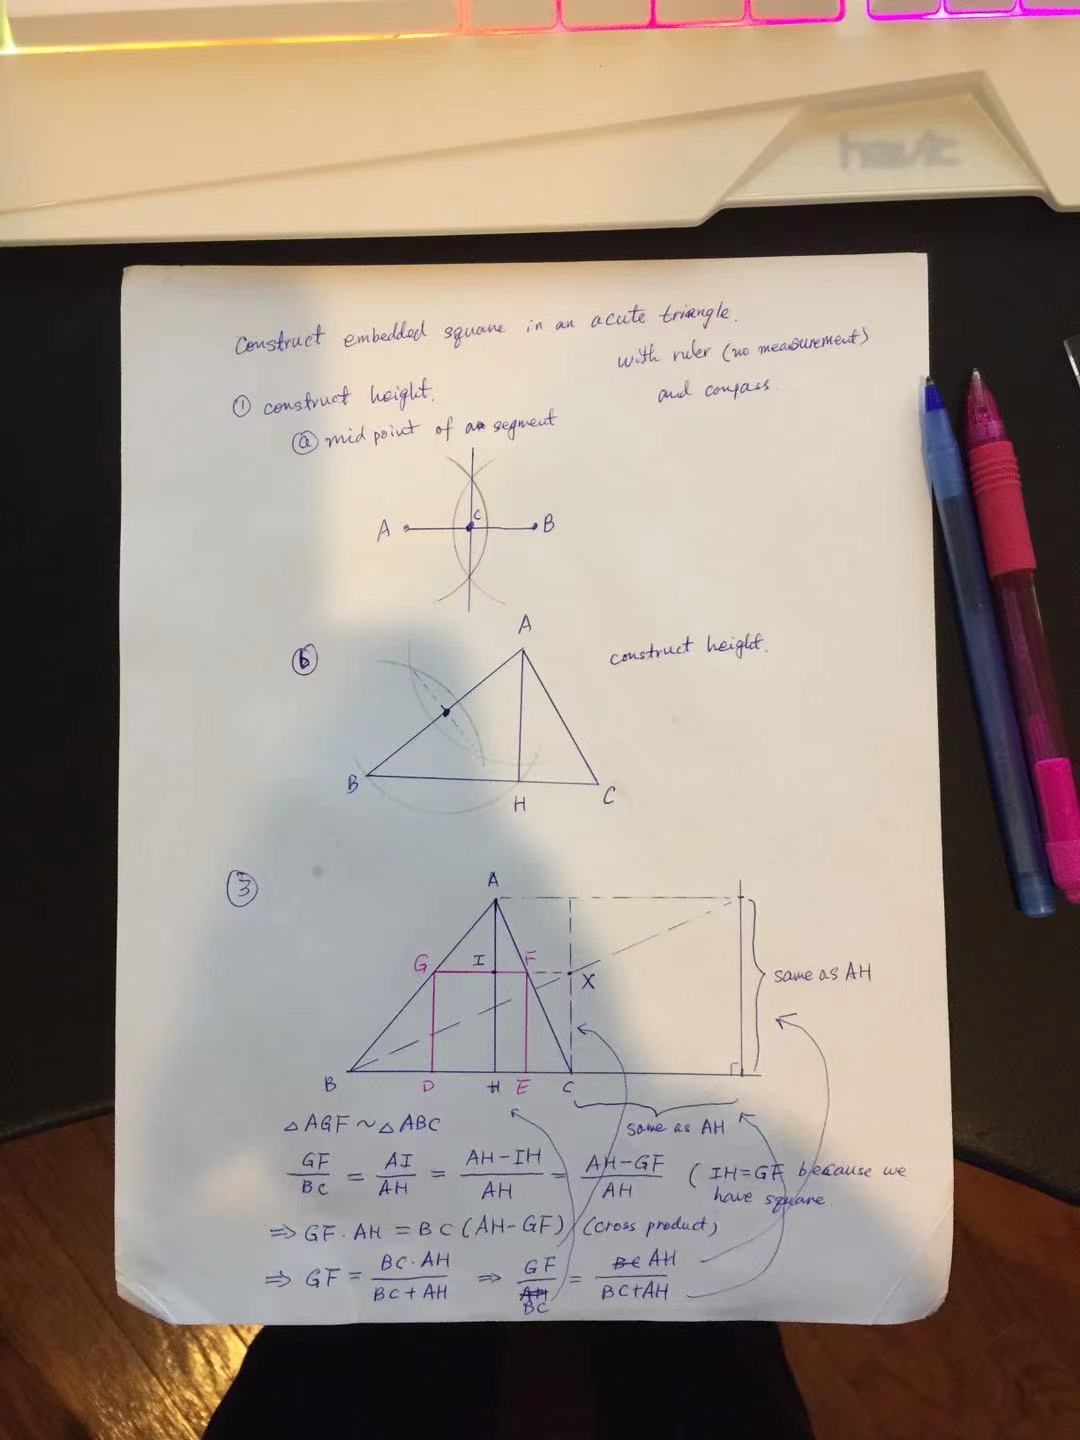 havit
Construct embedded square in an acute triangle.
with ruler (no measurement)
and compass.
① construct height.
ⓐ mid point of a segment
A C B
ⓑ
construct height.
A
B H C
③
A
G I F
X
same as AH
B D H E C
same as AH
△AGF ~ △ABC
GF/BC = AI/AH = (AH-IH)/AH = (AH-GF)/AH ( IH=GF because we
have square.
⇒ GF·AH = BC (AH-GF) (cross product)
⇒ GF = BC·AH/(BC+AH) ⇒ GF/BC = AH/(BC+AH)